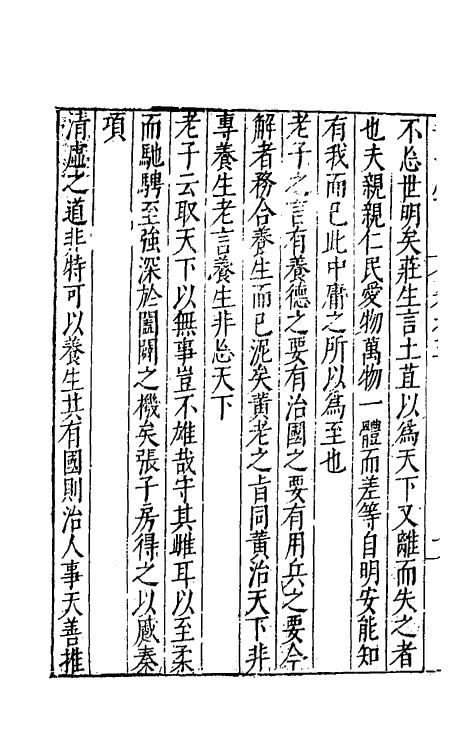 不忘世明矣莊生言土苴以爲天下又離而失之者
也夫親親仁民愛物萬物一體而差等自明安能知
有我而已此中庸之所以爲至也
老子之言有養德之要有治國之要有用兵之要今
解者務合養生而已泥矣黃老之旨同黃治天下非
專養生老言養生非忘天下
老子云取天下以無事豈不雄哉守其雌耳以至柔
而馳騁至強深於闔闢之機矣張子房得之以蹙秦
項
清虛之道非特可以養生其有國則治人事天善推